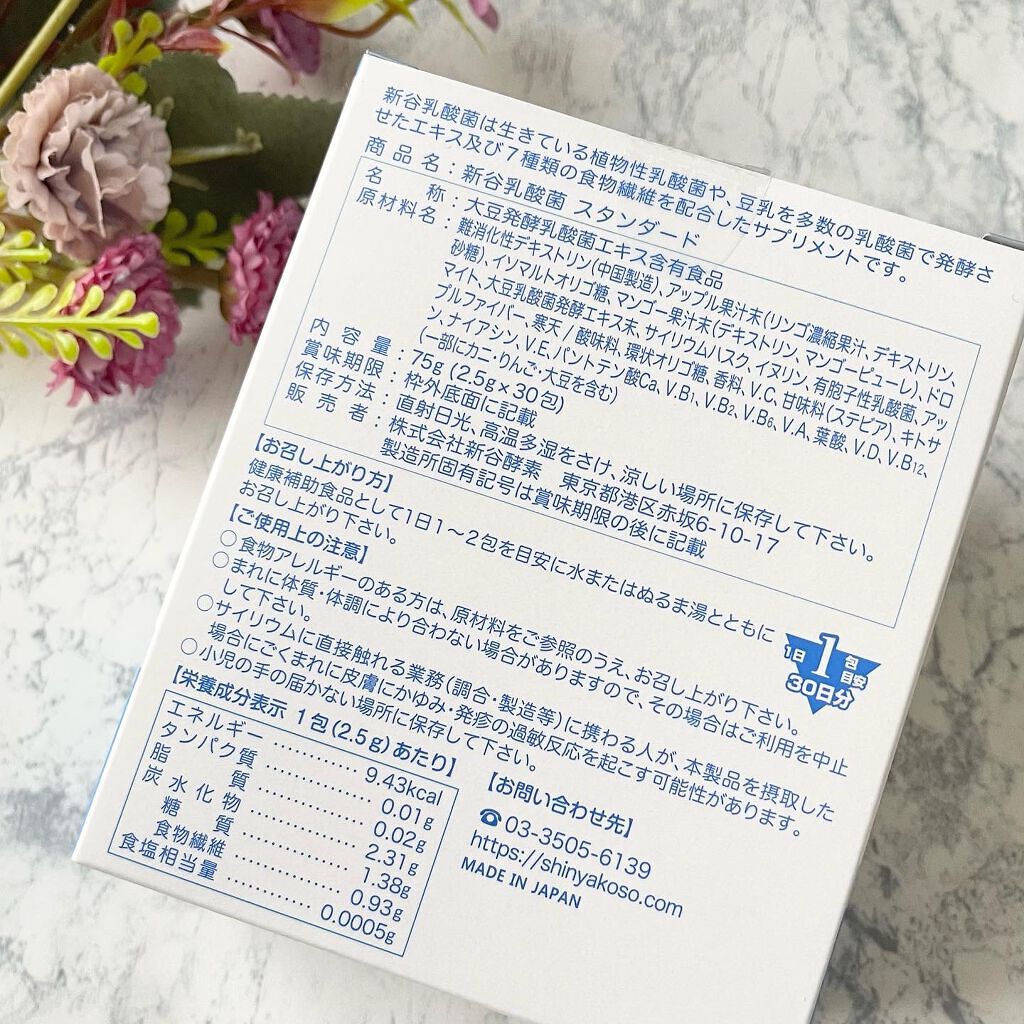 新谷乳酸菌は生きている植物性乳酸菌や、豆乳を多数の乳酸菌で発酵さ
せたエキス及び7種類の食物繊維を配合したサプリメントです。
商品名：新谷乳酸菌 スタンダード
名称：大豆発酵乳酸菌エキス含有食品
原材料名：難消化性デキストリン(中国製造)、アップル果汁末(リンゴ濃縮果汁、デキストリン、
砂糖)、イソマルトオリゴ糖、マンゴー果汁末(デキストリン、マンゴーピューレ)、ドロ
マイト、大豆乳酸菌発酵エキス末、サイリウムハスク、イヌリン、有胞子性乳酸菌、アッ
プルファイバー、寒天/酸味料、環状オリゴ糖、香料、V.C、甘味料(ステビア)、キトサ
ン、ナイアシン、V.E、パントテン酸Ca、V.B1、V.B2、V.B6、V.A、葉酸、V.D、V.B12、
(一部にカニ・りんご・大豆を含む)
内容量：75g(2.5g×30包)
賞味期限：枠外底面に記載
保存方法：直射日光、高温多湿をさけ、涼しい場所に保存して下さい。
販売者：株式会社新谷酵素 東京都港区赤坂6-10-17
製造所固有記号は賞味期限の後に記載
【お召し上がり方】
健康補助食品として1日1～2包を目安に水またはぬるま湯とともに
お召し上がり下さい。
【ご使用上の注意】
○食物アレルギーのある方は、原材料をご参照のうえ、お召し上がり下さい。
○まれに体質・体調により合わない場合がありますので、その場合はご利用を中止
して下さい。
○サイリウムに直接触れる業務(調合・製造等)に携わる人が、本製品を摂取した
場合にごくまれに皮膚にかゆみ・発疹の過敏反応を起こす可能性があります。
○小児の手の届かない場所に保存して下さい。
1日1包目安
30日分
【栄養成分表示 1包(2.5g)あたり】
エネルギー……………9.43kcal
タンパク質……………0.01g
脂質……………0.02g
炭水化物……………2.31g
糖質……………1.38g
食物繊維……………0.93g
食塩相当量……………0.0005g
【お問い合わせ先】
☎03-3505-6139
https://shinyakoso.com
MADE IN JAPAN